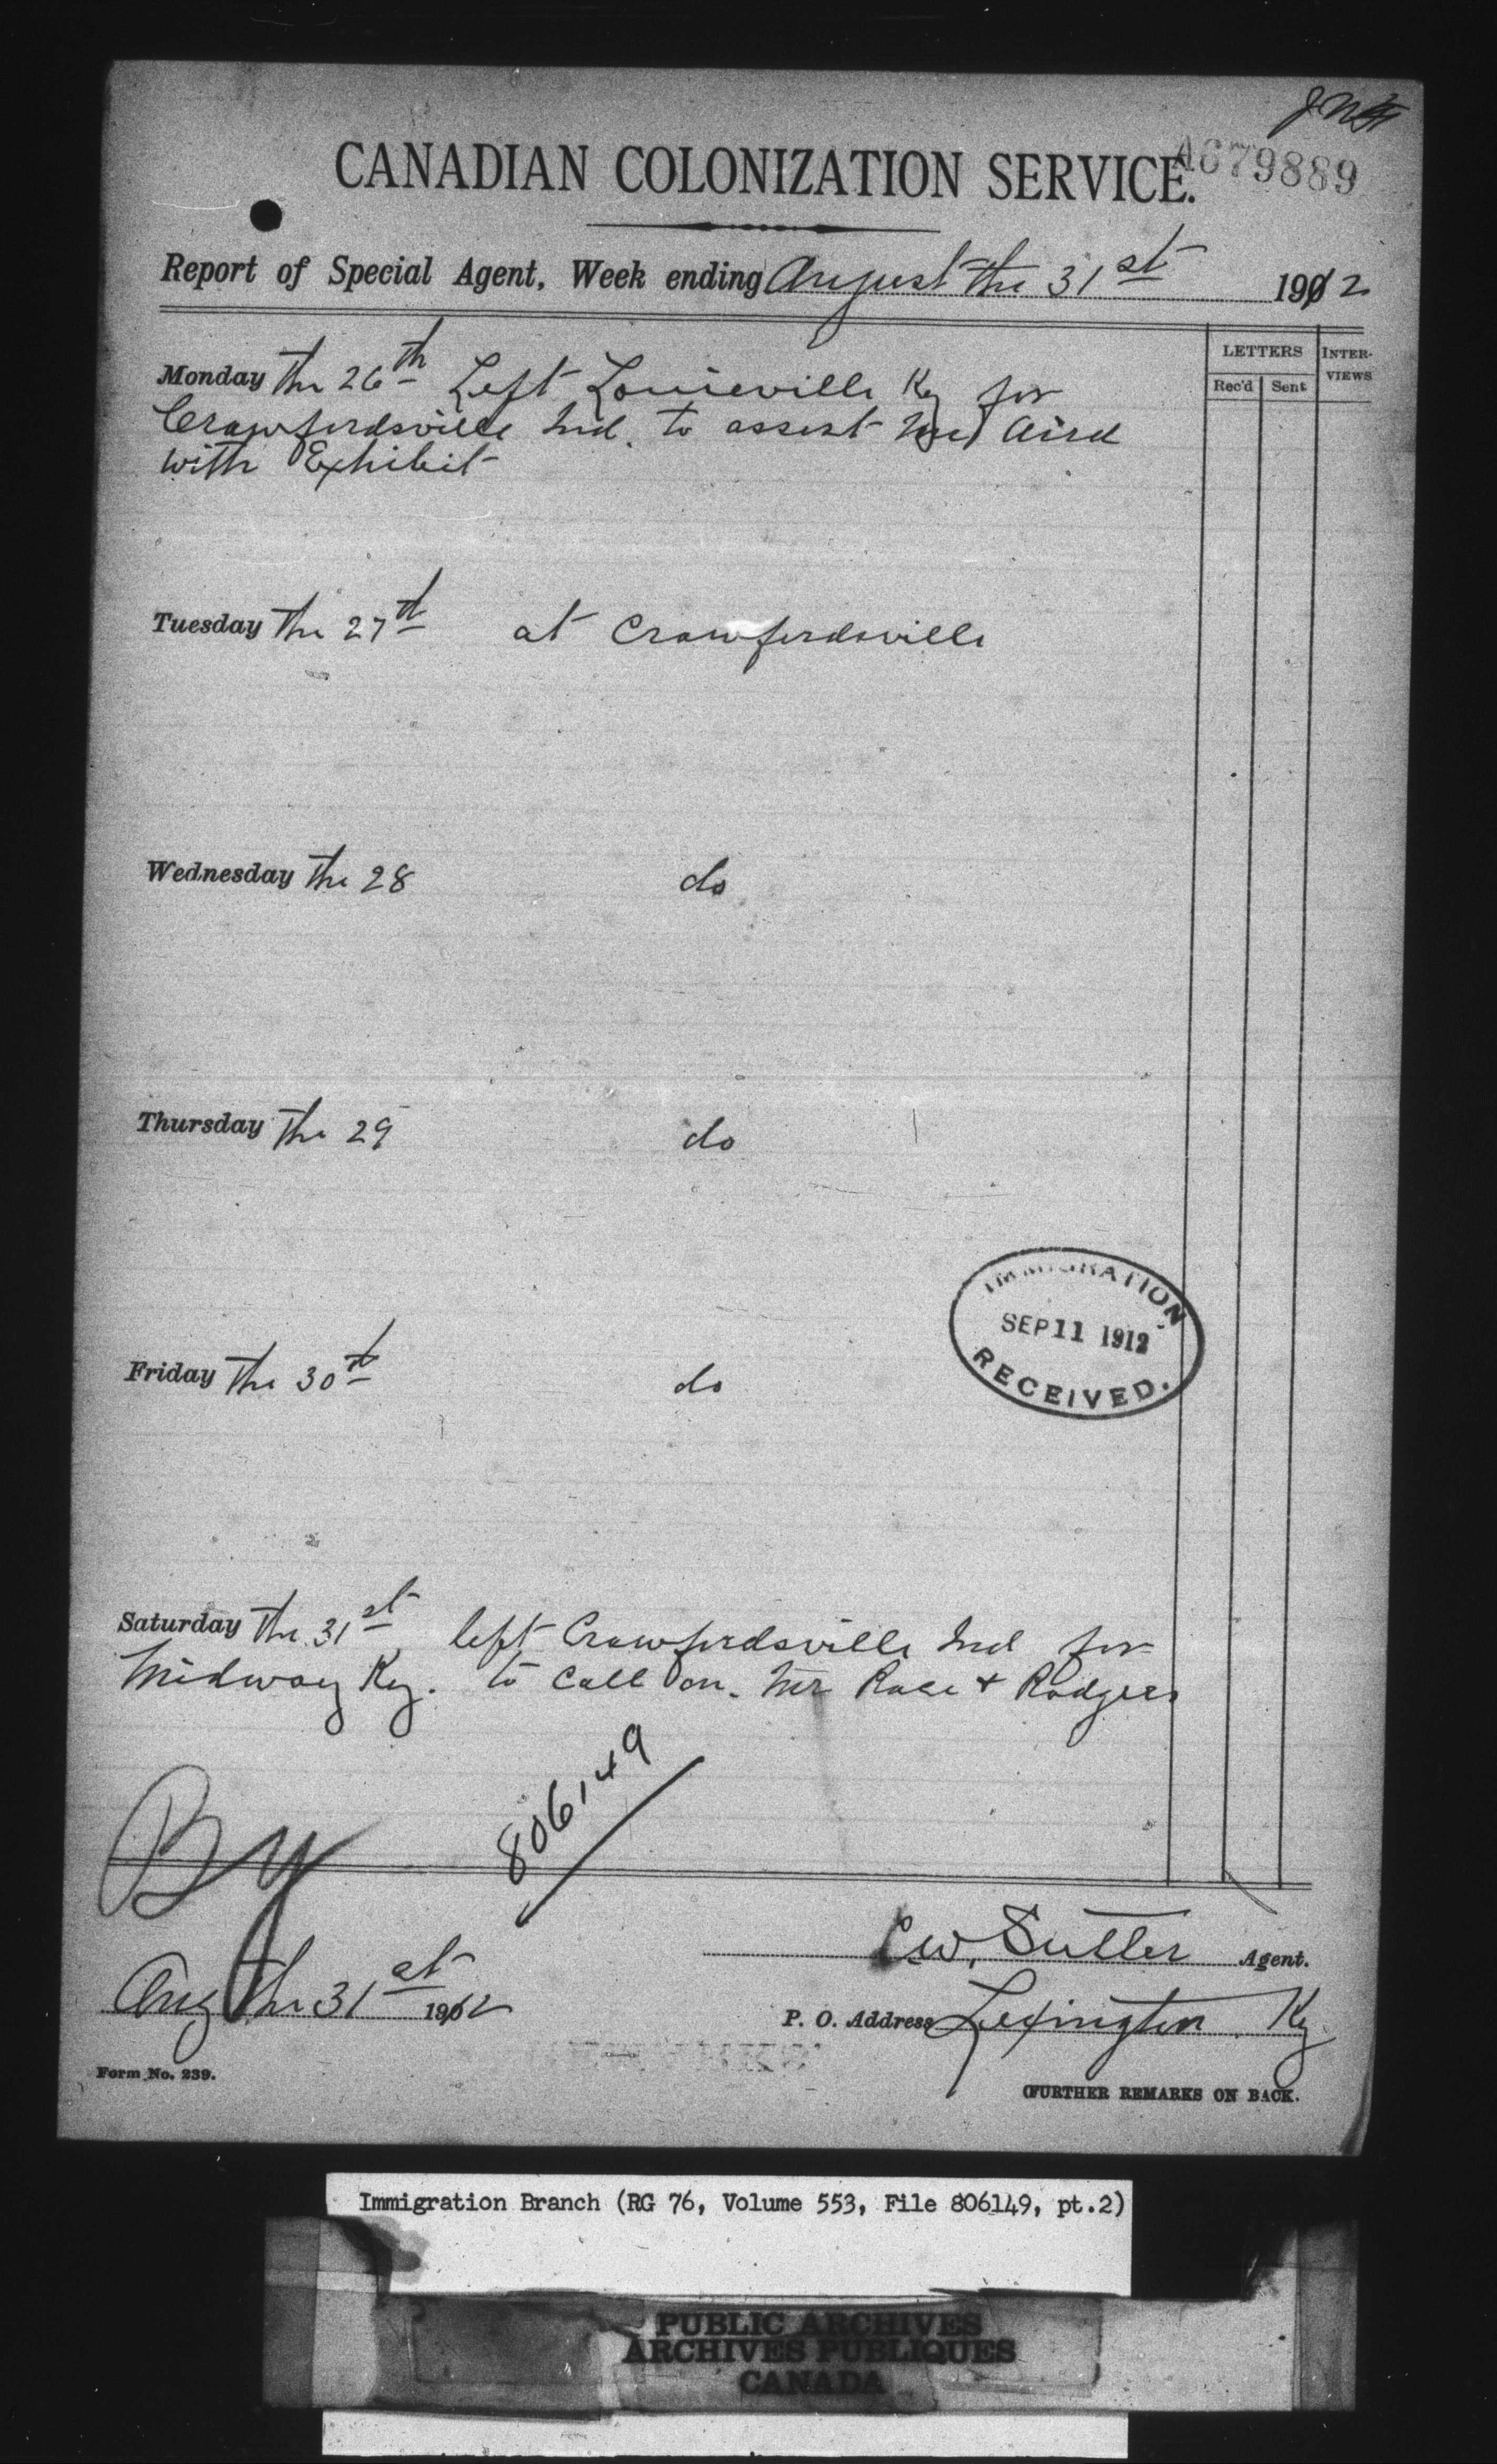 A679889
CANADIAN COLONIZATION SERVICE.
Report of Special Agent, Week ending August the 31st 1912
LETTERS INTER-VIEWS
Rec'd Sent
Monday the 26th Left Louiseville Ky for
Crawfordsville Ind. to assist Mr Aird
with Exhibit
Tuesday the 27th at Crawfordsville
Wednesday the 28 do
Thursday the 29 do
IMMIGRATION
SEP 11 1912
RECEIVED.
Friday the 30th do
Saturday the 31st left Crawfordsville Ind for
Midway Ky. to call on. Mr Rase & Rodgers
806,149
By
C.W. Sutter Agent.
Aug the 31st 1912
P. O. Address Lexington Ky
Form No. 239.
(FURTHER REMARKS ON BACK.
Immigration Branch (RG 76, Volume 553, File 806149, pt.2)
PUBLIC ARCHIVES
ARCHIVES PUBLIQUES
CANADA